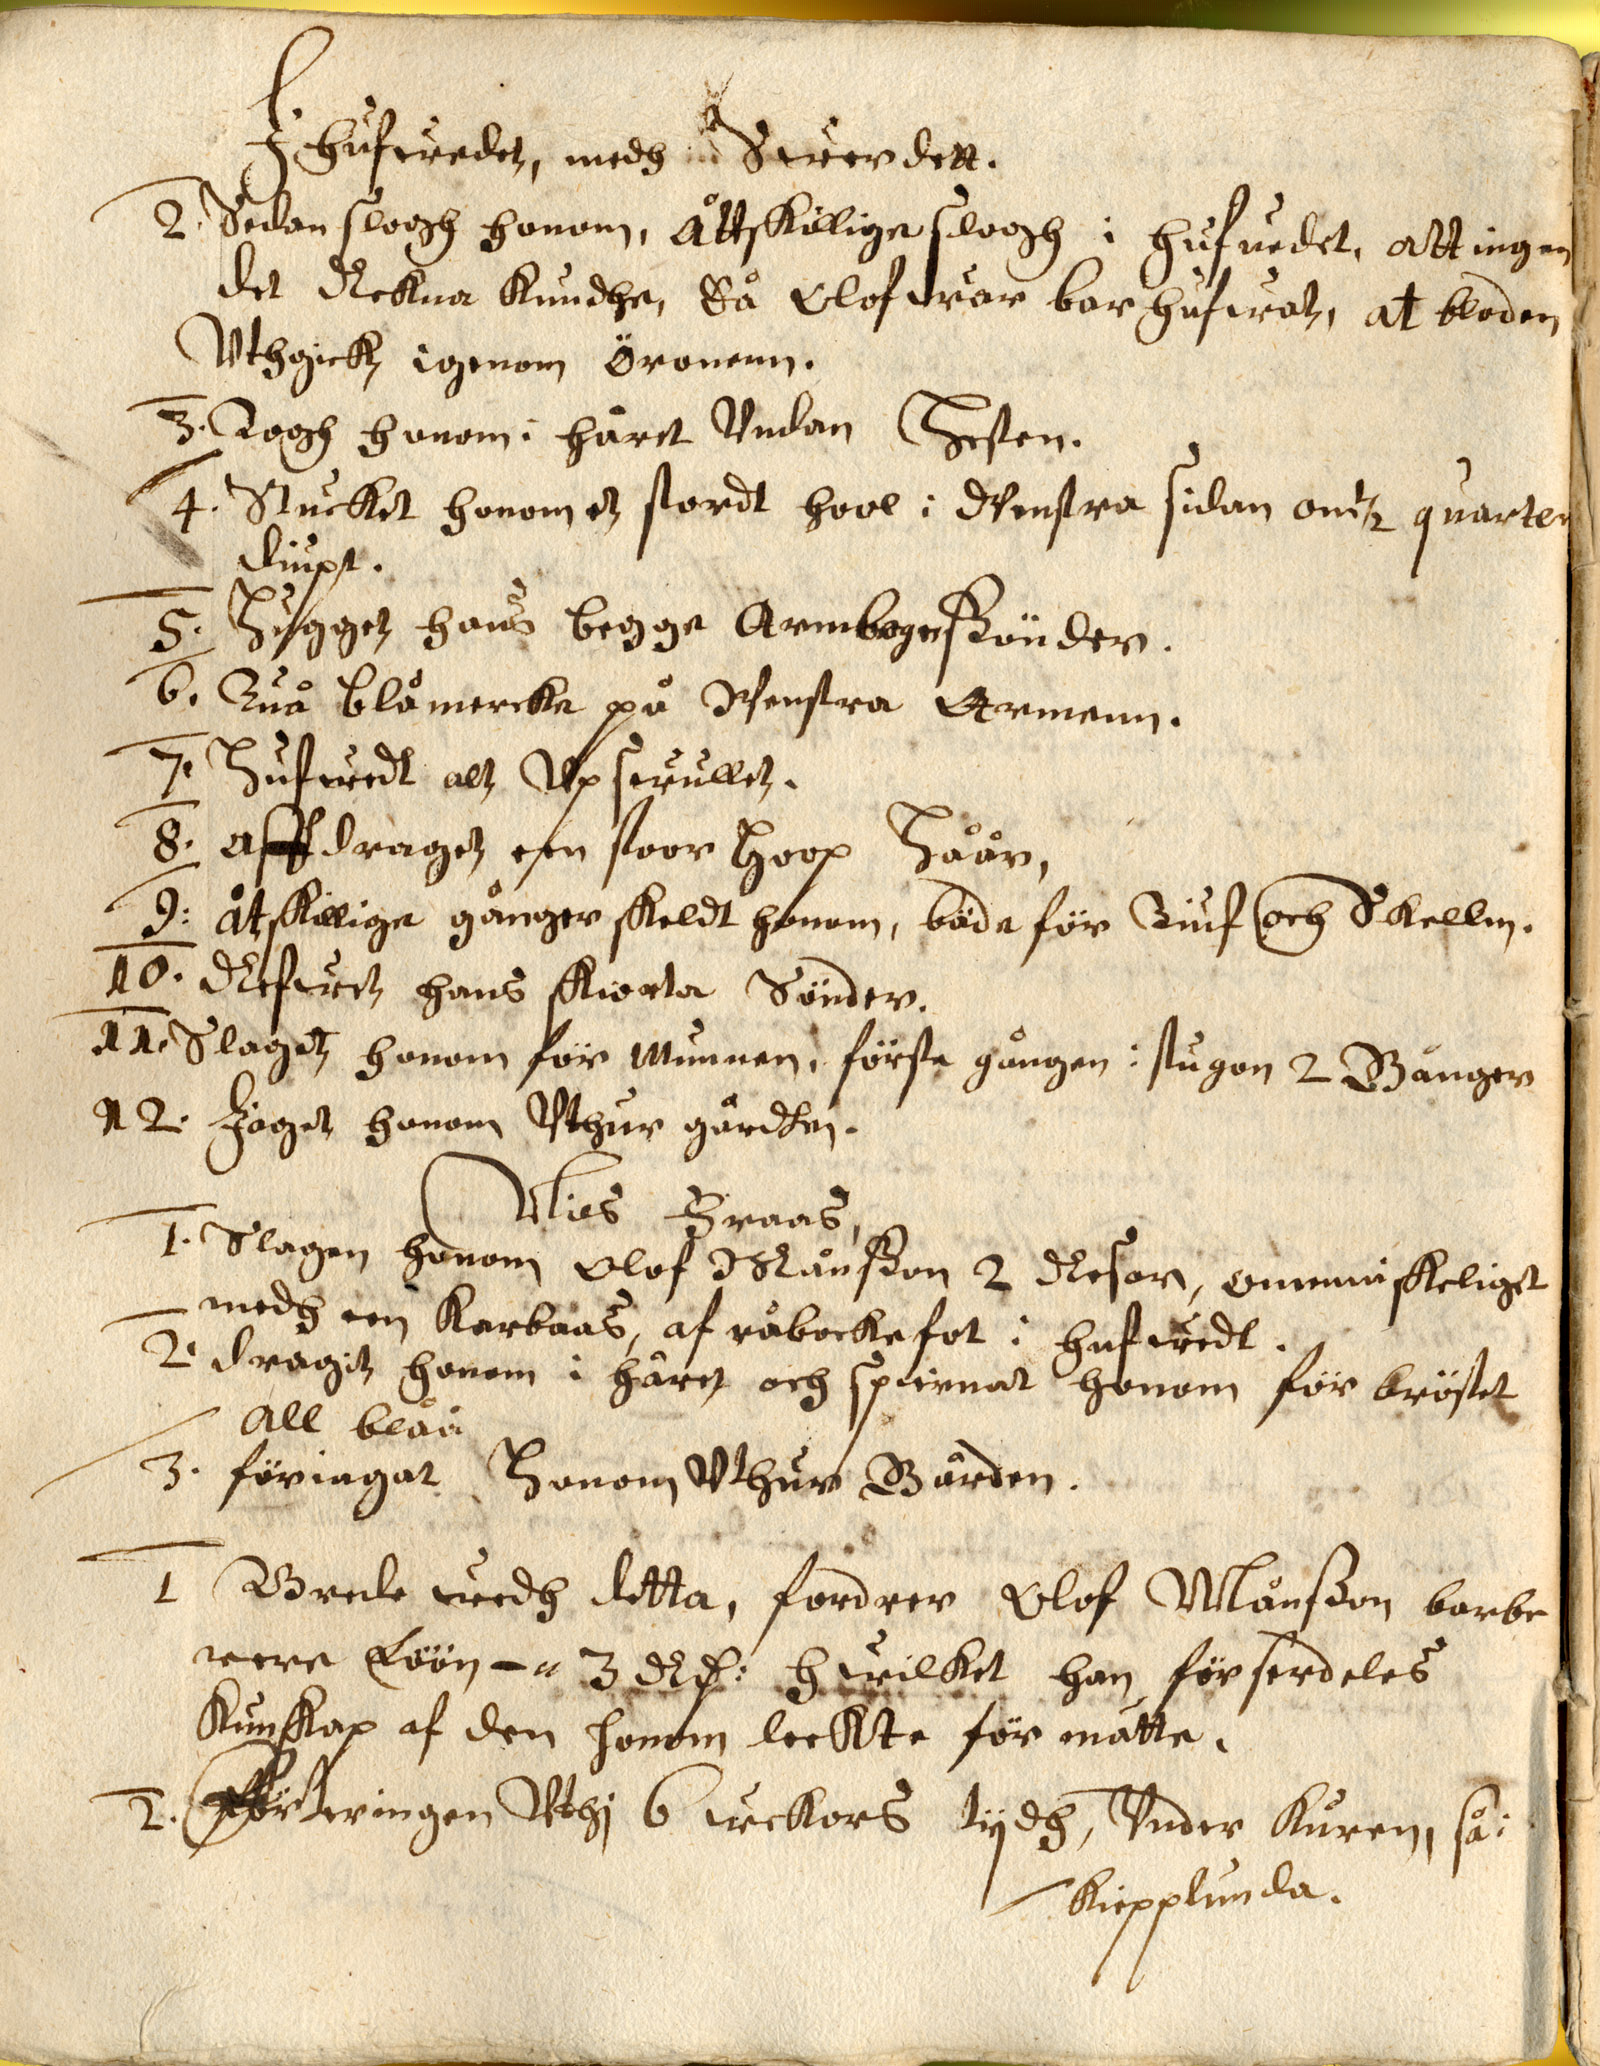 I hufwedet, medh Swerdett.
2. Sedan sloogh honom, åttskillige sloogh i hufuedet, att ingen
det Rekna kundhe, Så Olof war bar hufwat, at bloden
Vthgick igenom öronenn.
3. Toogh honom i håret Vndan Hesten.
4. Stucket honom et stordt hool i Venstra sidan om ½ quarter
diupt.
5. Hugget hans begge Armboger sönder.
6. Tuå blåmercke på Venstra Armenn.
7. Hufwedt alt Vpswullet.
8. aff draget een stoor hoop Håår,
9: åtskillige gånger skeldt honom, både för Tiuf och Skellm.
10. Refwet hans skiorta Sönder.
11. Slaget honom för Munnen, förste gången i stugon 2 Gånger
12. Jaget honom Vthur gårdhen.
Nies Graas,
1. Slagen honom Olof Månsson 2 Resor, omenniskeliget
medh een Karbaas, af råbocke fot i hufwedt.
2. dragit honom i håret och spiernat honom för bröstet
all blåå
3. föriagat Honom Vthur Gården.
1 Brede wedh detta, fordrer Olof Månsson barbe
rere Löön - 3 Rd: hwilket han för serdeles
Kunskap af den honom leekte för måtte.
2. förteringen Vthj 6 weckors tijdh, Vnder Kuren, så i
Kiepplunda.